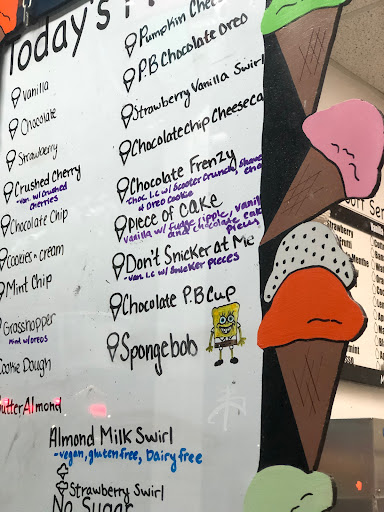 Today's
Vanilla
Chocolate
Strawberry
Crushed Cherry
-Van. w/ crushed
cherries
Chocolate Chip
Cookies n cream
Mint Chip
Grasshopper
Mint w/ oreos
Cookie Dough
Butter Almond
Pumkin Chee
P.B Chocolate Oreo
Strawberry Vanilla Swirl
Chocolate chip Cheeseca
Chocolate Frenzy
-Choc. I.C w/ Scooter Crunch,
+ Oreo Cookie
Piece of Cake
Vanilla w/ fudge ripple, vanil
and chocolate cake
pieces
Don't Snicker at Me
-Van. I.C w/ Snicker pieces
Chocolate P.B Cup
Spongebob
Almond Milk Swirl
-vegan, gluten free, Dairy free
Strawberry Swirl
No Sugar
oft Se